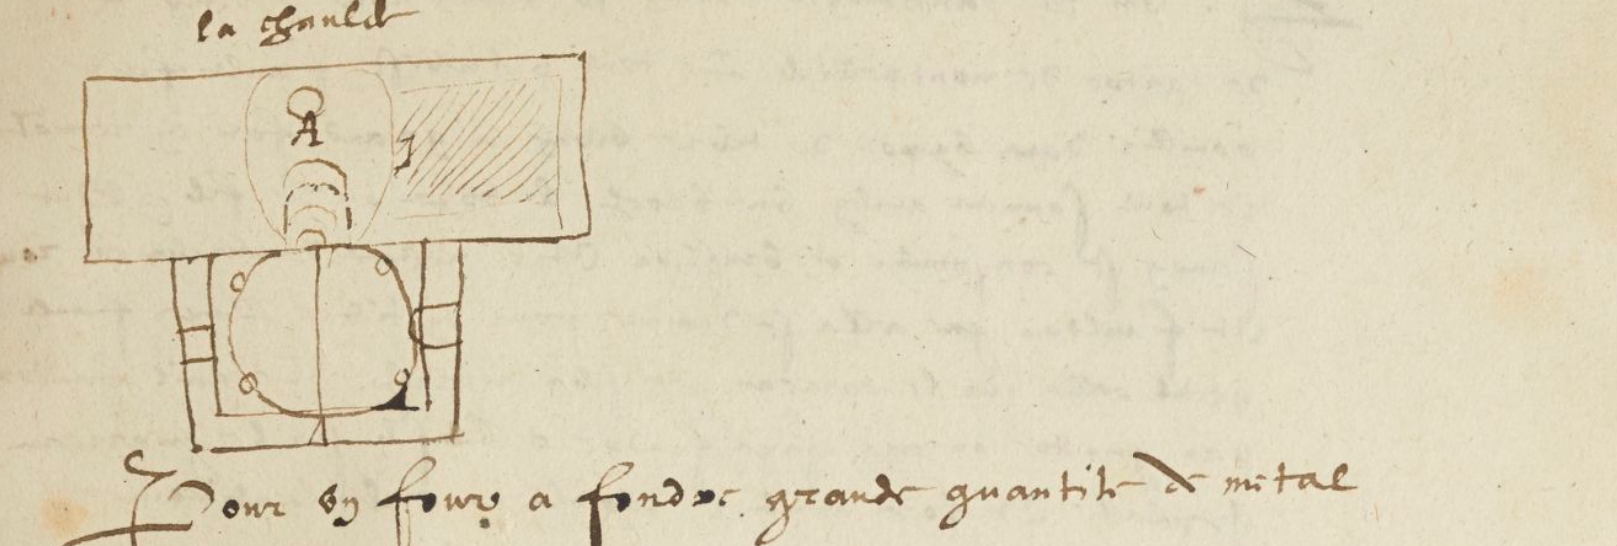 la chaulde
A
Pour un four a fondre grande quantite de metal